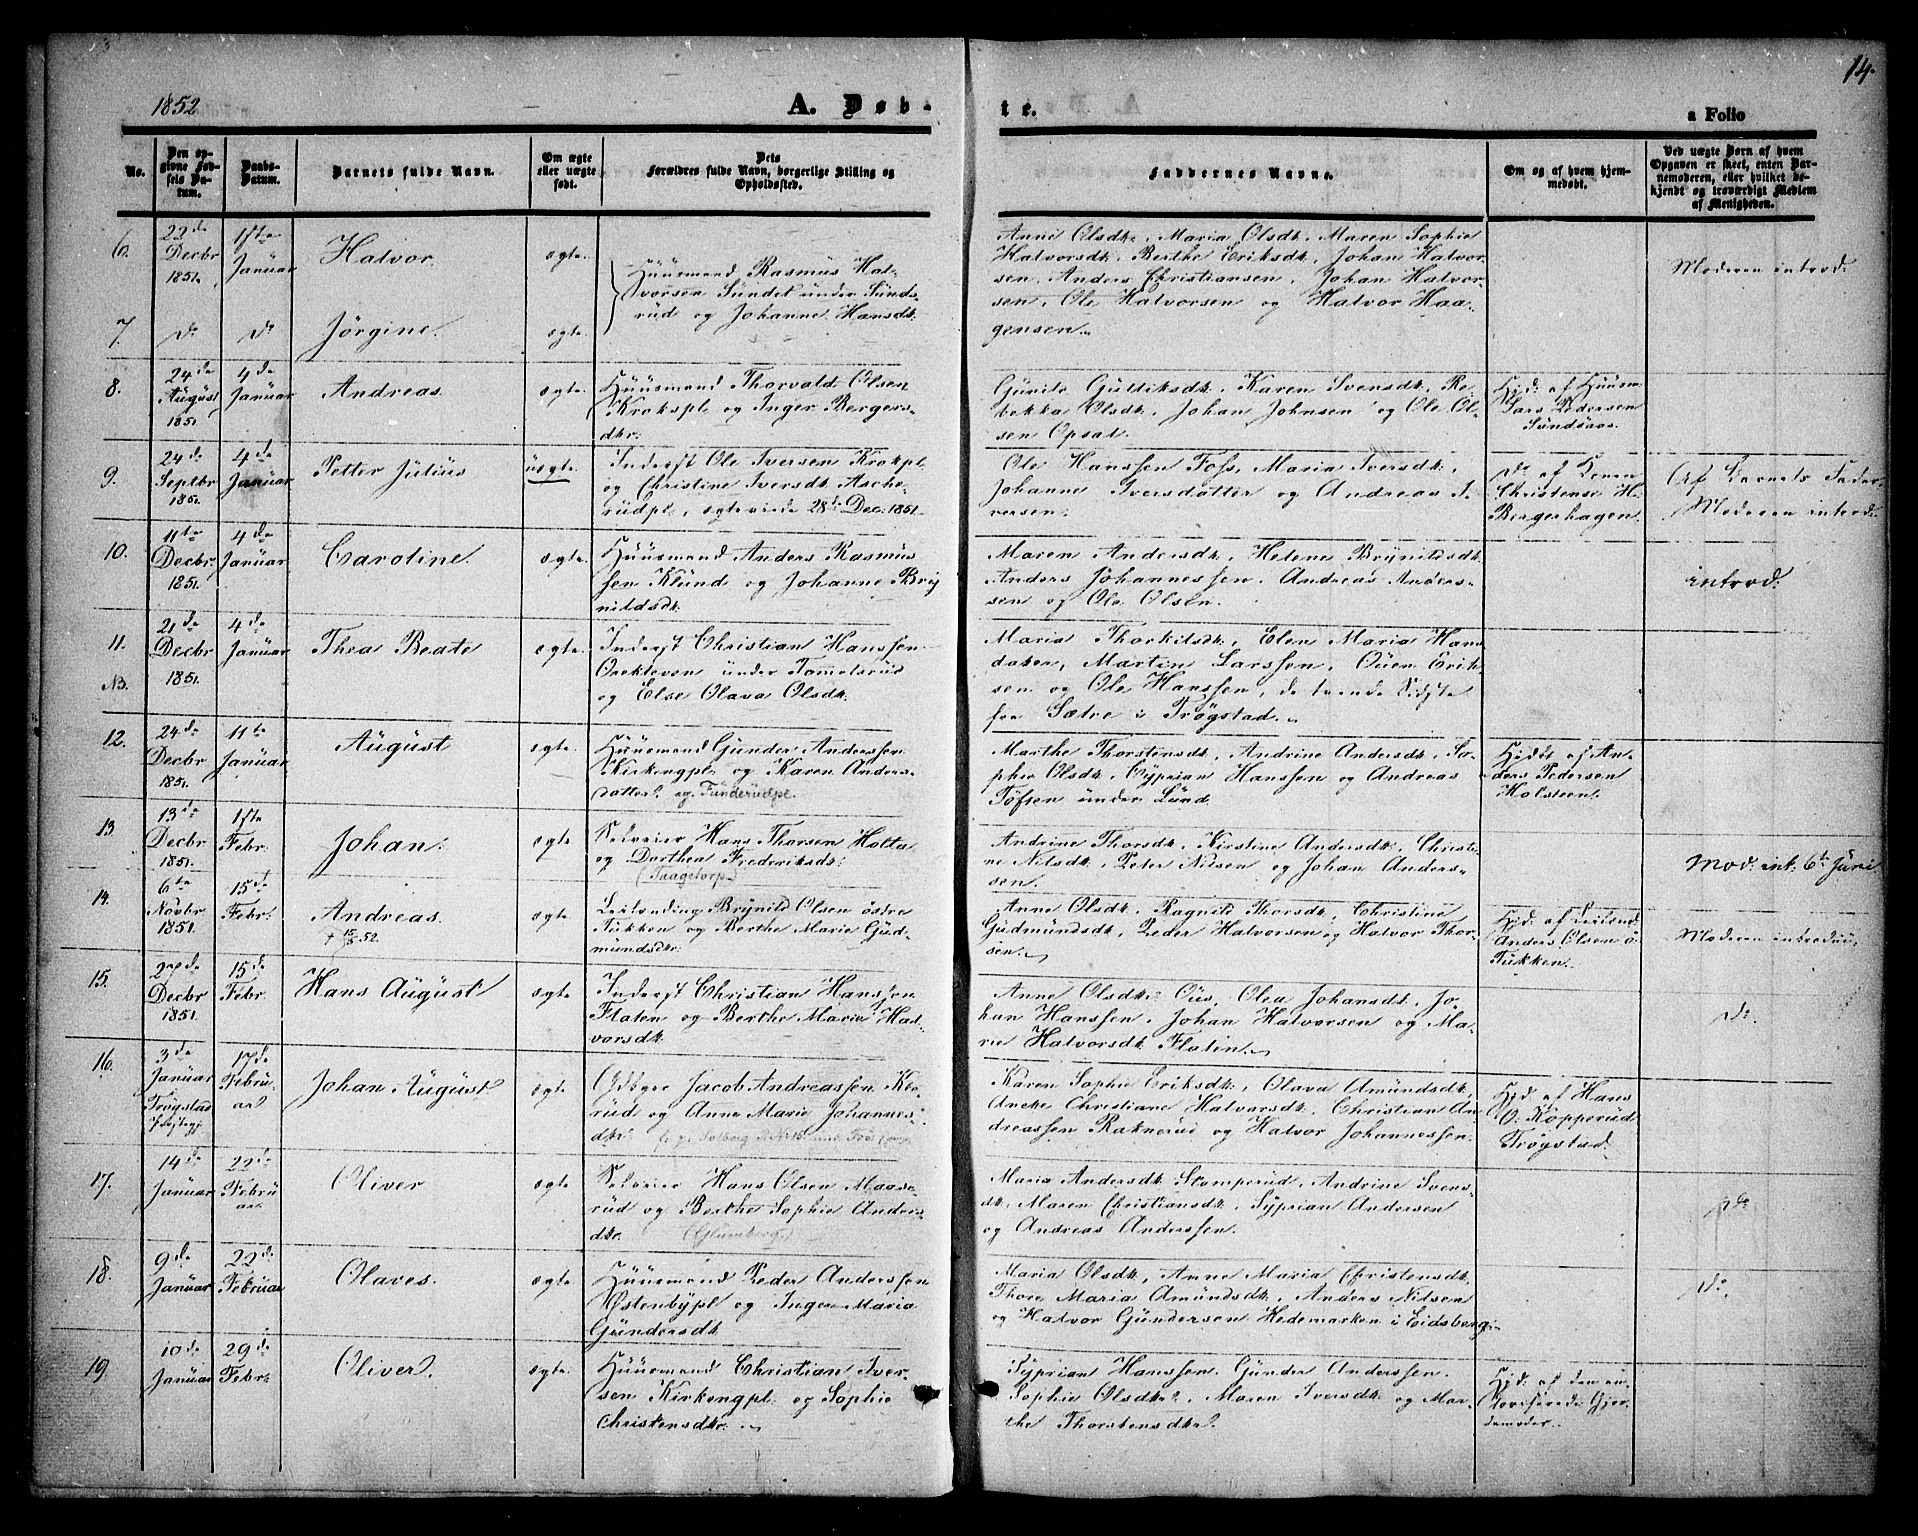 1852
A. Døb-
te.
14.
a Folio
No.
Den op-
givne Fød-
sels Da-
tum.
Daabs-
Datum.
Barnets fulde Navn.
Om ægte
eller uægte
født.
Dets
Forældres fulde Navn, borgerlige Stilling og
Opholdssted.
Faddernes Navne.
Om og af hvem hjem-
medøbt.
Ved uægte Børn af hvem
Opgaven er skeet, enten Bar-
nemoderen, eller hvilket be-
kjendt og troværdigt Medlem
af Menigheden.
6.
22de
Decbr
1851.
1ste
Januar
Halvor.
ægte.
Huusmand Rasmus Hal-
vorsen Sundet under Sunds-
rud og Johanne Hansdt.
Anne Olsdt., Maria Olsdt., Maren Sophie
Halvorsdt., Berthe Eriksdt., Johan Halvor-
sen, Anders Christiansen, Johan Halvor-
sen, Ole Halvorsen og Halvor Haa-
gensen.
Moderen introd.
7.
do
do
Jörgine.
ægte.
8.
24de
August
1851.
4de
Januar
Andreas.
ægte.
Huusmand Thorvald Olsen
Krokspl. og Inger Bergers-
dtr.
Gunild Gulliksdt., Karen Svensdt., Re-
bekka Olsdt., Johan Johnsen og Ole Ol-
sen Opsal.
Hjd. af Huusm.
Lars Pedersen
Sundsaas.
9.
24de
Septbr
1851.
4de
Januar
Petter Julius
uægte.
Inderst Ole Iversen Krokpl.
og Christine Iversdt. Ascho-
rudpl., ægteviede 28d. Dec. 1851.
Ole Hanssen Foss, Maria Iversdt.,
Johanne Iversdatter og Andreas I-
versen.
do af Konen
Christense H.
Bergerhagen.
Af Barnets Fader.
Moderen introd.
10.
11te
Decbr
1851.
4de
Januar
Caroline.
ægte.
Huusmand Anders Rasmus-
sen Klund og Johanne Bry-
nildsdt.
Maren Andersdt., Helene Brynildsdt.
Anders Johannessen, Andreas Anders-
sen og Ole Olsen.
introd.
11.
NB.
21de
Decbr
1851.
4de
Januar
Thea Beate
ægte.
Inderst Christian Hanssen
Orekleven under Tommelsrud
og Else Olava Olsdt.
Maria Thorkilsdt., Elen Maria Hans-
datter, Martin Larssen, Ouen Erik-
sen og Ole Hanssen, de tvende Sidste
fra Sætre i Trögstad.
12.
24de
Decbr
1851.
11te
Januar
August
ægte.
Huusmand Gunder Anderssen
Kirkengpl. og Karen Anders-
datter. eg. Funderudpl.
Marthe Thorstensdt., Andrine Andersdt., So-
phie Olsdt., Cyprian Hanssen og Andreas
Tofsen under Lund.
Hjdöbt af An-
ders Pedersen
Holsteen.
13
13de
Decbr
1851.
1ste
Febr.
Johan.
ægte
Selveier Hans Thorsen Holta
og Dorthea Frederiksdt.
(Taagetorp)
Andrine Thorsdt., Kirstine Andersdt., Christi-
ne Nilsdt., Peter Nilsen og Johan Anders-
sen.
Mod. int. 6te Juni
14.
6te
Novbr
1851.
15de
Febr.
Andreas.
† 15/8 52.
ægte
Leilending Brynild Olsen östre
Tukken og Berthe Marie Gud-
mundsdtr.
Anne Olsdt., Ragnild Thorsdt., Christine
Gudmundsdt., Peder Halvorsen og Halvor Thor-
sen.
Hjd. af Leilend.
Anders Olsen ö.
Tukken.
Moderen introdu.
15.
27de
Decbr
1851.
15de
Febr.
Hans August
ægte
Inderst Christian Hanssen
Flaten og Berthe Marie Hal-
vorsdt.
Anne Olsdt. Ous, Olea Johansdt., Jo-
han Hanssen, Johan Halvorsen og Ma-
rie Halvorsdt. Flaten.
do.
16.
3de
Januar
Trögstad
17de
Febru-
ar
Johan August
ægte
Jacob Andreassen Ke-
rud og Anne Marie Johannes-
dtr.
Karen Sophie Eriksdt., Olava Amundsdt.,
Aneke Christiane Halvorsdt., Christian An-
dreassen Raknerud og Halvor Johannessen.
Hjd. af Hans
O. Kopperud
Trögstad.
17.
14de
Januar
22de
Febru-
ar.
Oliver
ægte
Selveier Hans Olsen Maase-
rud og Berthe Sophie Anders-
dtr. (Glumberg)
Maria Andersdt. Stomperud, Andrine Svens-
dt., Maren Christiansdt., Syprian Andersen
og Andreas Anderssen.
do
18.
9de
Januar
22de
Februar
Olaves.
ægte
Huusmand Peder Anderssen
Östenbypl. og Inger Maria
Gundersdt.
Maria Olsdt., Anne Maria Christensdt.
Thore Maria Amundsdt., Anders Nilsen
og Halvor Gundersen Hedemarken i Eidsberg.
do.
19
10de
Januar
29de
Febr.
Oliver.
ægte.
Huusmand Christian Iver-
sen Kirkengpl. og Sophie
Christensdtr.
Syprian Hanssen, Gunder Anderssen,
Sophie Olsdtr., Maren Iversdt. og Mar-
the Thorstensdtr.
Hjd. af den ex-
aminerede Gjor-
demoder.